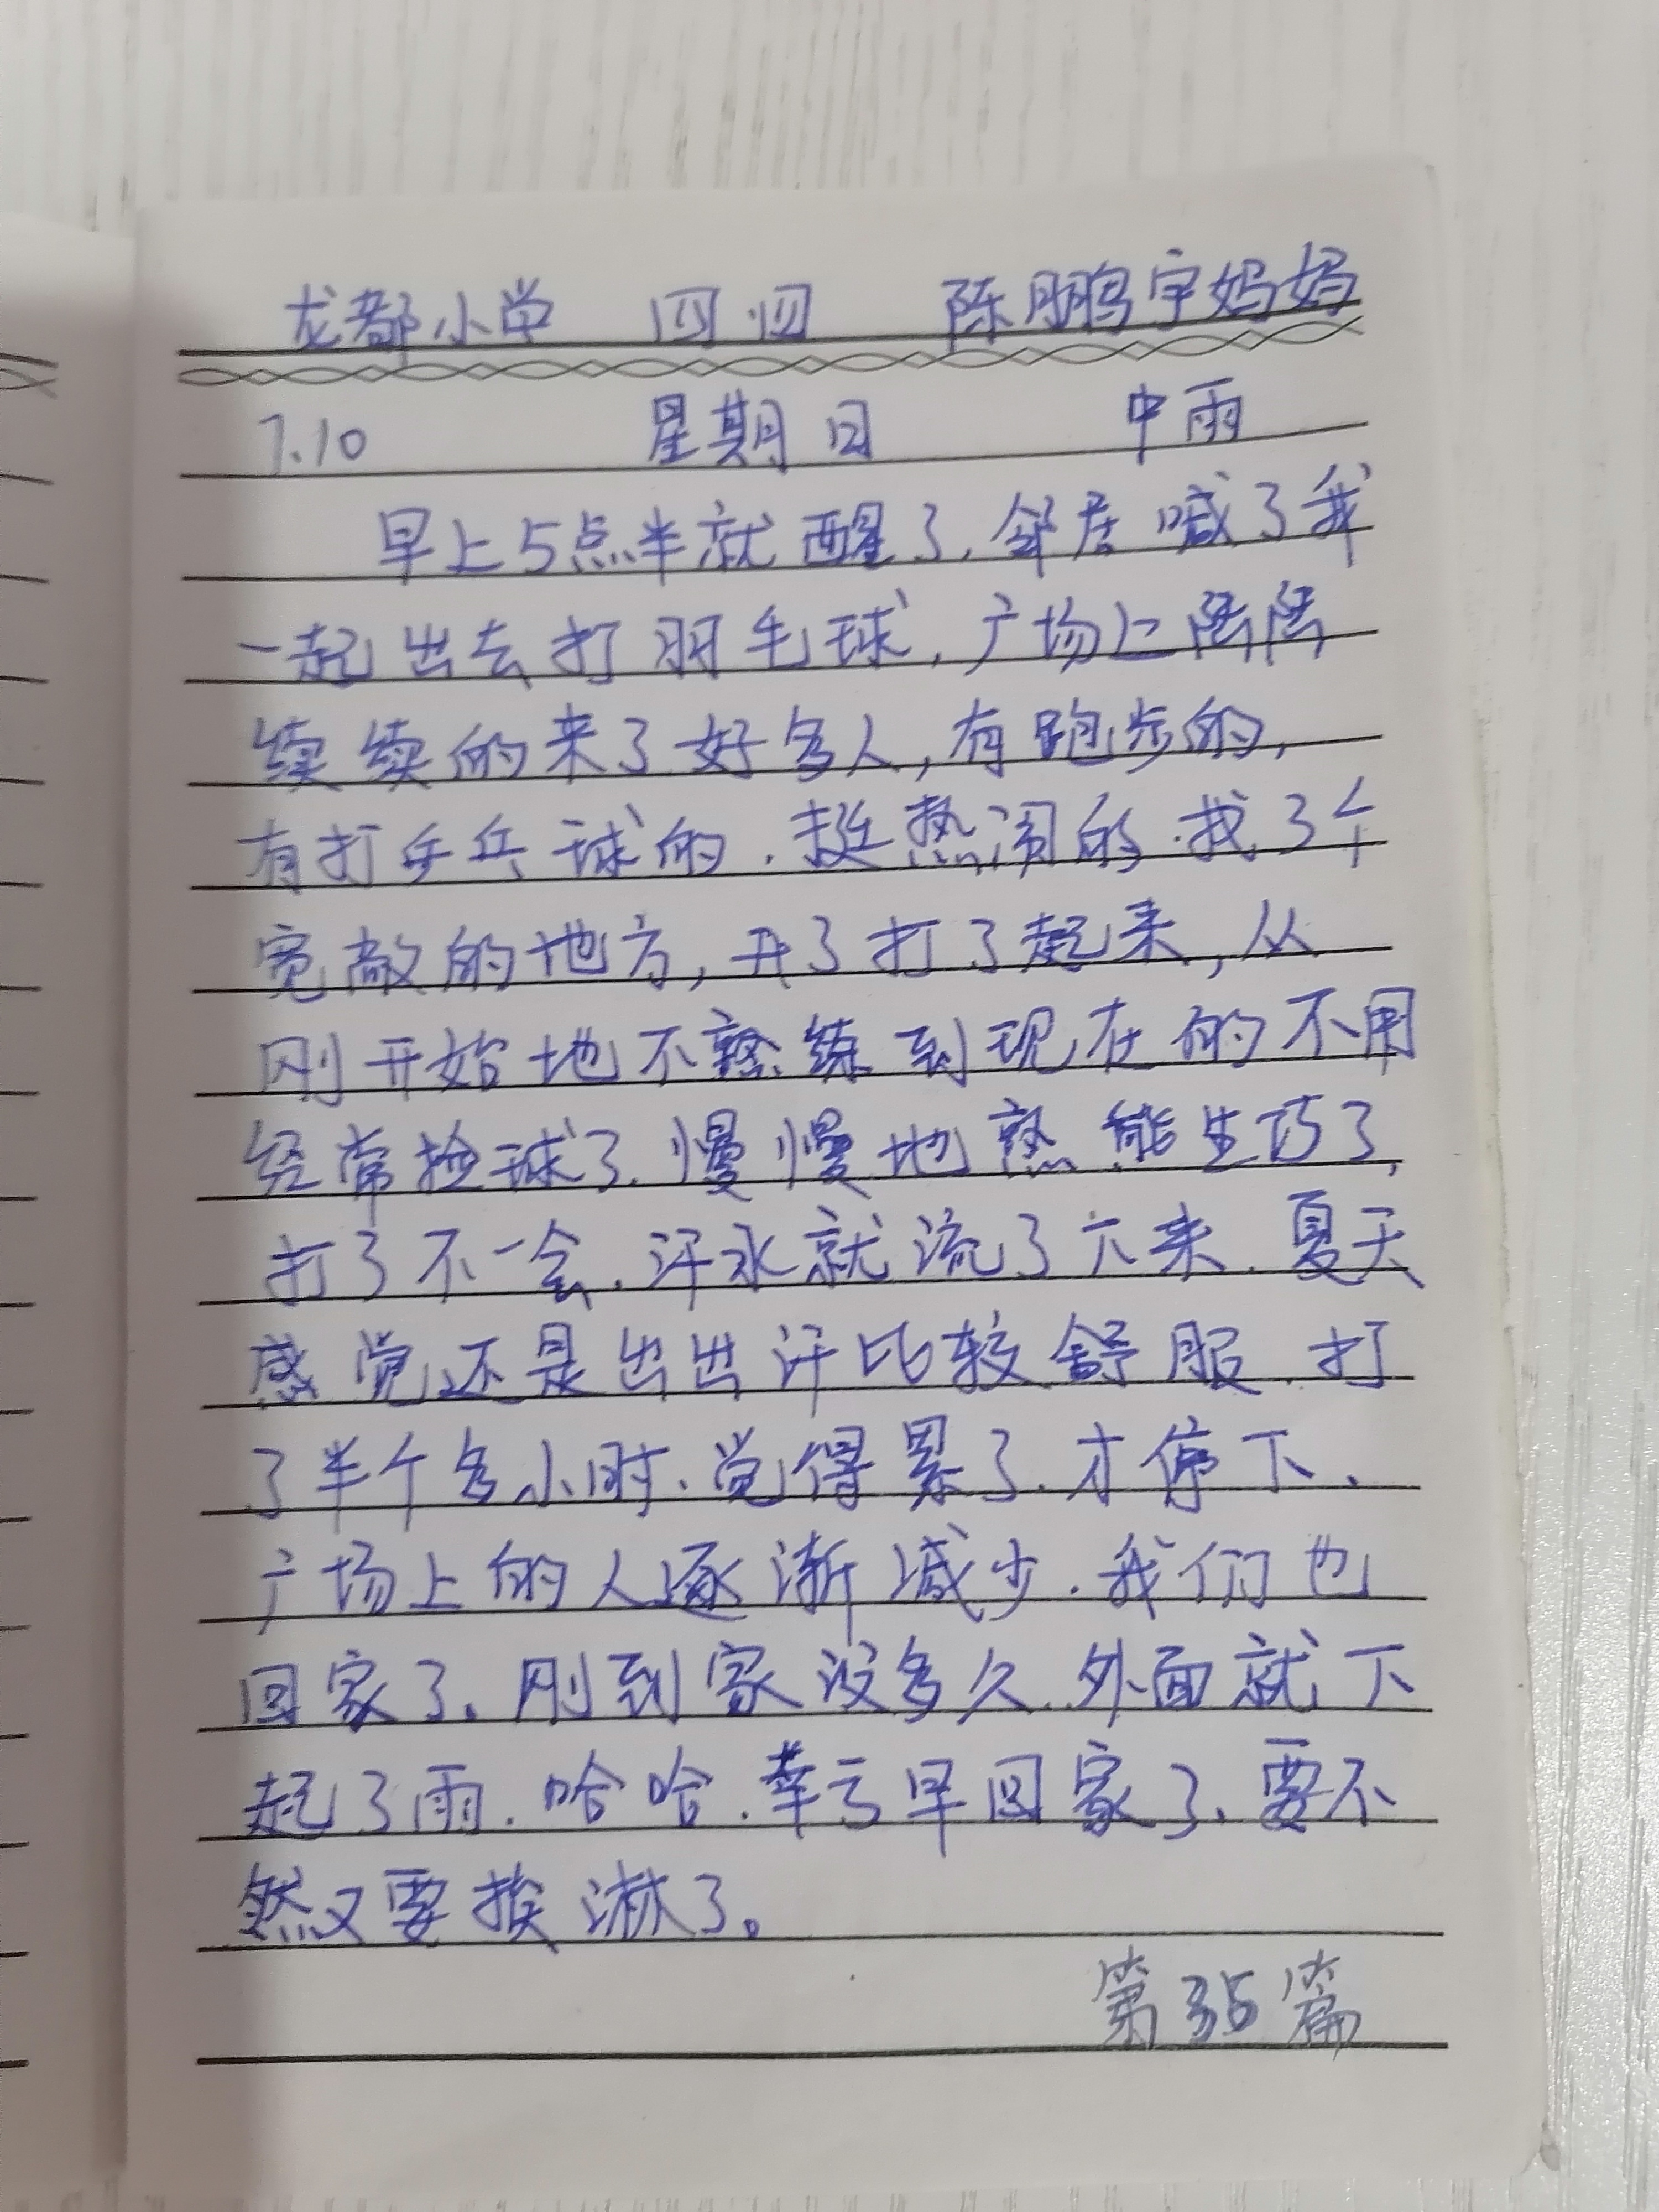 龙都小学 四.四 陈鹏宇妈妈
7.10 星期日 中雨
早上5点半就醒了.邻居喊了我
一起出去打羽毛球,广场上陆陆
续续的来了好多人,有跑步的,
有打乒乓球的.挺热闹的.找了个
宽敞的地方,开了打了起来,从
刚开始地不熟练到现在的不用
经常捡球了.慢慢地熟能生巧了,
打了不一会.汗水就流了下来.夏天
感觉还是出出汗比较舒服.打
了半个多小时、觉得累了.才停下、
广场上的人逐渐减少.我们也
回家了。刚到家没多久.外面就下
起了雨.哈哈.幸亏早回家了、要不
然又要挨淋了。
第35篇